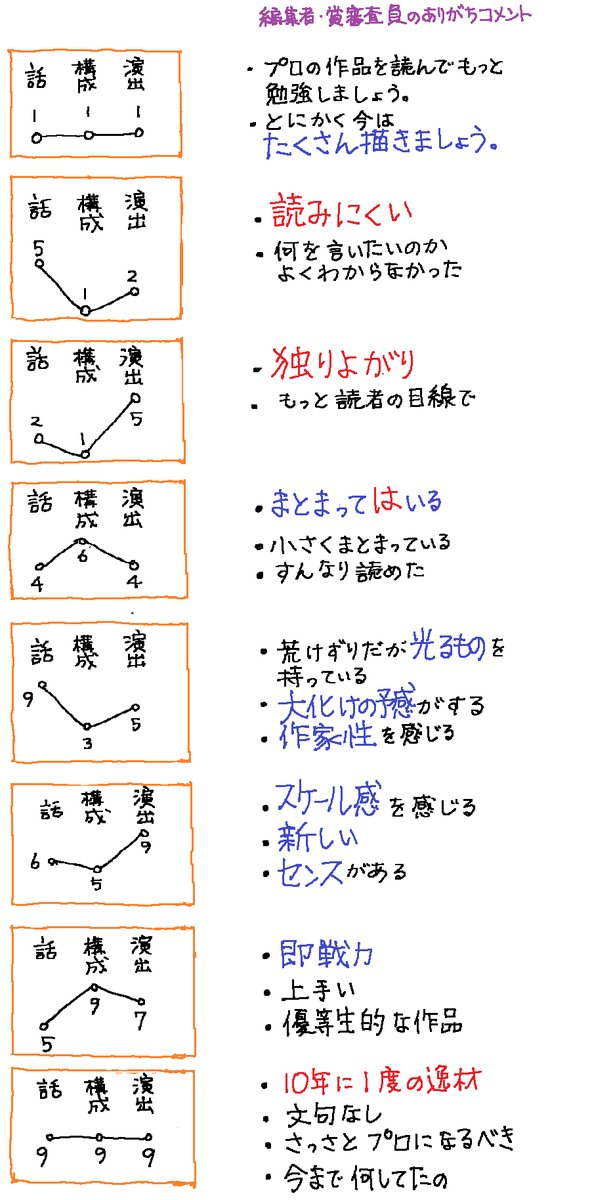 編集者・賞審査員のありがちコメント
話 構成 演出
1 1 1
・プロの作品を読んでもっと
勉強しましょう。
・とにかく今は
たくさん描きましょう。
話 構成 演出
5 1 2
・読みにくい
・何を言いたいのか
よくわからなかった
話 構成 演出
2 1 5
・独りよがり
・もっと読者の目線で
話 構成 演出
4 6 4
・まとまってはいる
・小さくまとまっている
・すんなり読めた
話 構成 演出
9 3 5
・荒けずりだが光るものを
持っている
・大化けの予感がする
・作家性を感じる
話 構成 演出
6 5 9
・スケール感を感じる
・新しい
・センスがある
話 構成 演出
5 9 7
・即戦力
・上手い
・優等生的な作品
話 構成 演出
9 9 9
・10年に1度の逸材
・文句なし
・さっさとプロになるべき
・今まで何してたの